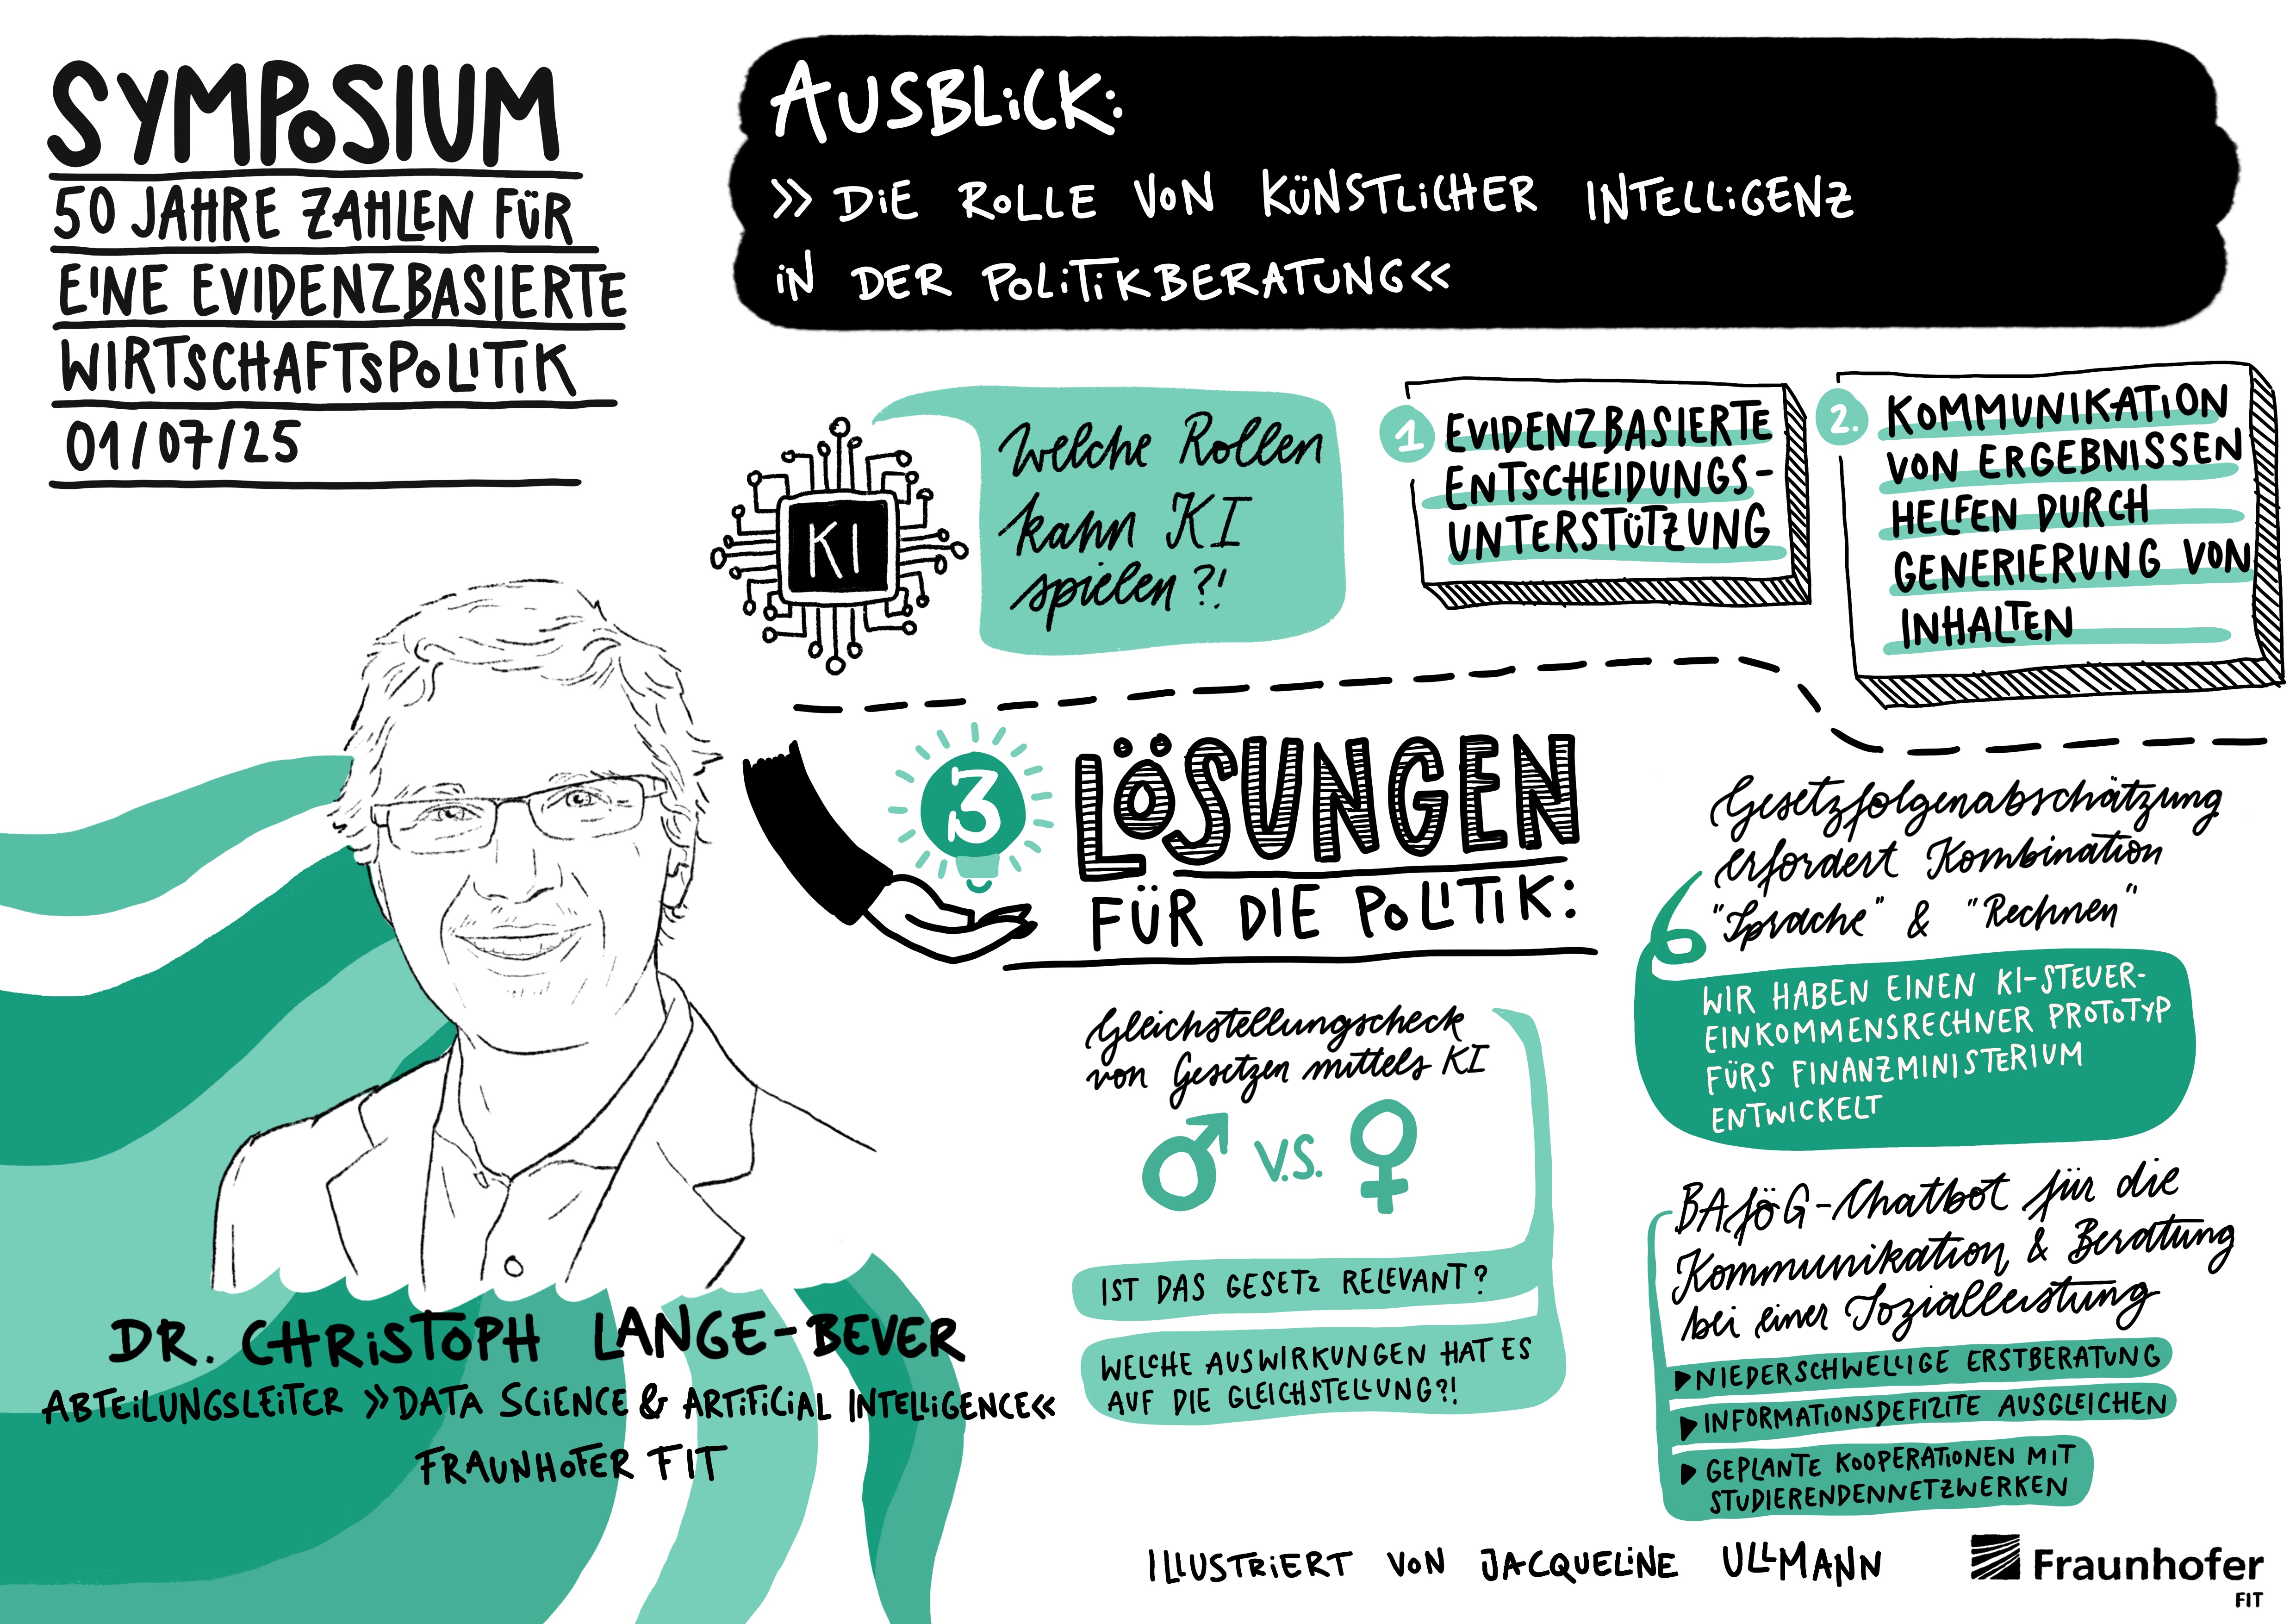 SYMPOSIUM
50 JAHRE ZAHLEN FÜR
EINE EVIDENZBASIERTE
WIRTSCHAFTSPOLITIK
01/07/25
AUSBLICK:
» DIE ROLLE VON KÜNSTLICHER INTELLIGENZ
IN DER POLITIKBERATUNG«
KI
Welche Rollen
kann KI
spielen?!
1 EVIDENZBASIERTE
ENTSCHEIDUNGS-
UNTERSTÜTZUNG
2. KOMMUNIKATION
VON ERGEBNISSEN
HELFEN DURCH
GENERIERUNG VON
INHALTEN
3 LÖSUNGEN
FÜR DIE POLITIK:
Gleichstellungscheck
von Gesetzen mittels KI
V.S.
IST DAS GESETZ RELEVANT?
WELCHE AUSWIRKUNGEN HAT ES
AUF DIE GLEICHSTELLUNG?!
Gesetzfolgenabschätzung
erfordert Kombination
"Sprache" & "Rechnen"
WIR HABEN EINEN KI-STEUER-
EINKOMMENSRECHNER PROTOTYP
FÜRS FINANZMINISTERIUM
ENTWICKELT
BAföG-Chatbot für die
Kommunikation & Beratung
bei einer Sozialleistung
▶ NIEDERSCHWELLIGE ERSTBERATUNG
▶ INFORMATIONSDEFIZITE AUSGLEICHEN
▶ GEPLANTE KOOPERATIONEN MIT
STUDIERENDENNETZWERKEN
DR. CHRISTOPH LANGE-BEVER
ABTEILUNGSLEITER »DATA SCIENCE & ARTIFICIAL INTELLIGENCE«
FRAUNHOFER FIT
ILLUSTRIERT VON JACQUELINE ULLMANN
Fraunhofer
FIT